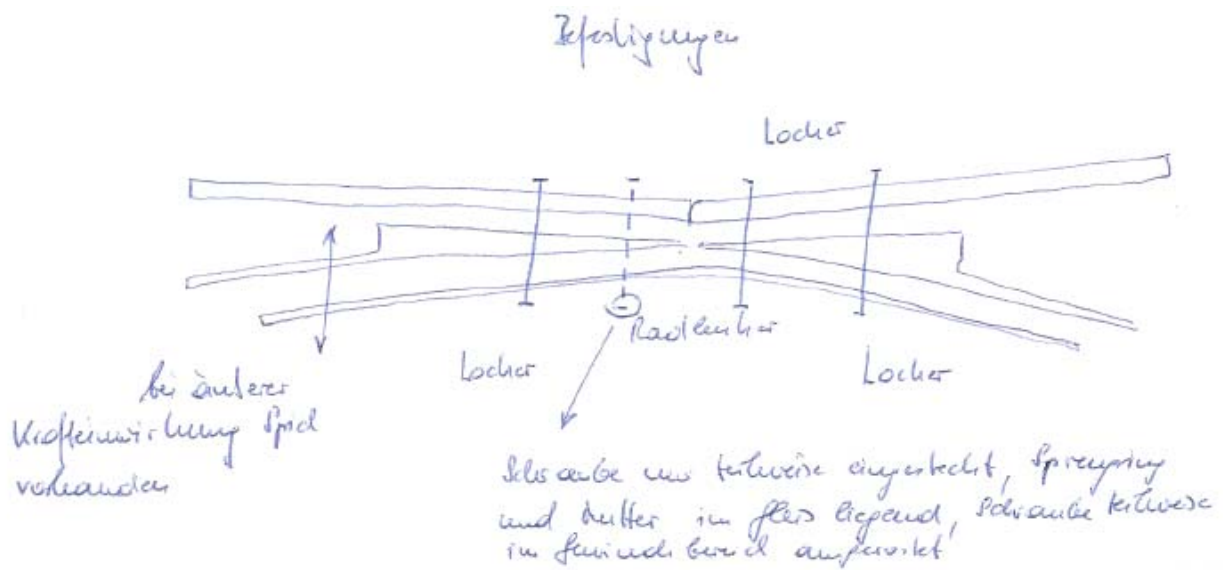 Befestigungen
Locker
Radlenker
Locker
Locker
bei äußerer
Krafteinwirkung Spiel
vorhanden
Schraube nur teilweise eingesteckt, Sprengring
und Mutter im Gleis liegend, Schraube teilweise
im Gewindebereich angerostet